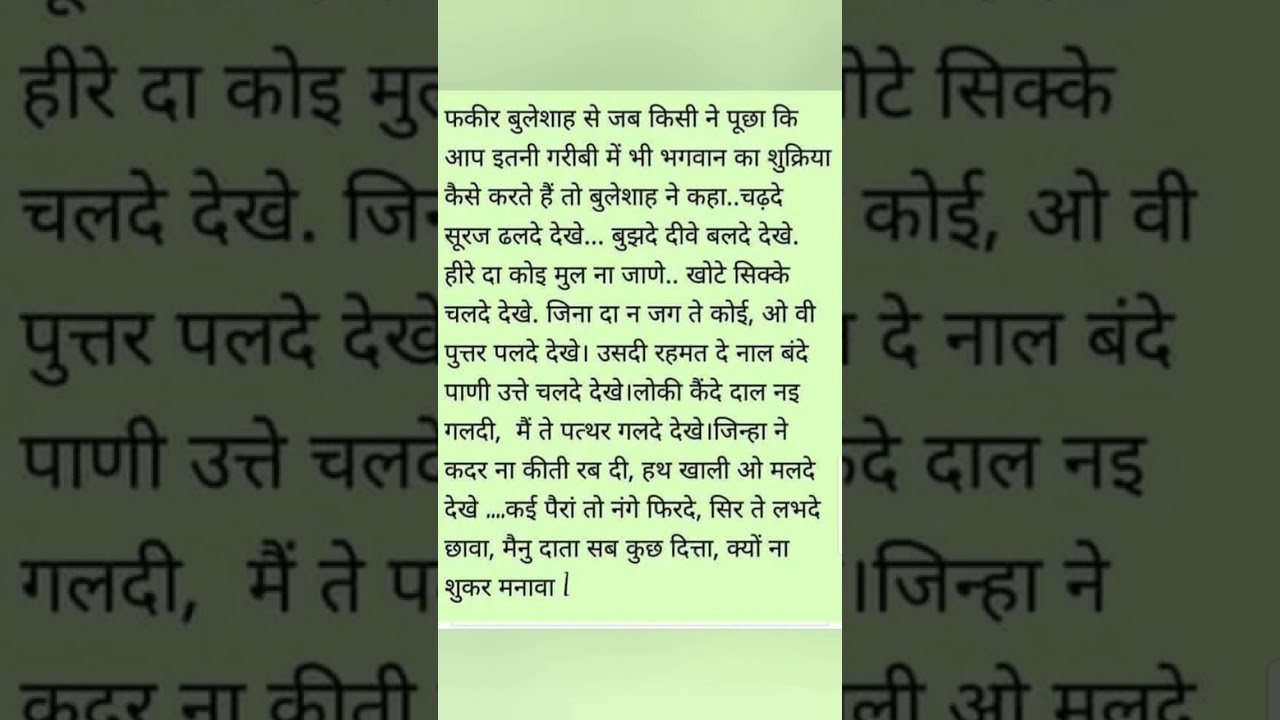 फकीर बुलेशाह से जब किसी ने पूछा कि
आप इतनी गरीबी में भी भगवान का शुक्रिया
कैसे करते हैं तो बुलेशाह ने कहा..चढ़दे
सूरज ढलदे देखे... बुझदे दीवे बलदे देखे.
हीरे दा कोइ मुल ना जाणे.. खोटे सिक्के
चलदे देखे. जिना दा न जग ते कोई, ओ वी
पुत्तर पलदे देखे। उसदी रहमत दे नाल बंदे
पाणी उत्ते चलदे देखे।लोकी कैंदे दाल नइ
गलदी, मैं ते पत्थर गलदे देखे।जिन्हा ने
कदर ना कीती रब दी, हथ खाली ओ मलदे
देखे ....कई पैरां तो नंगे फिरदे, सिर ते लभदे
छावा, मैनु दाता सब कुछ दित्ता, क्यों ना
शुकर मनावा l